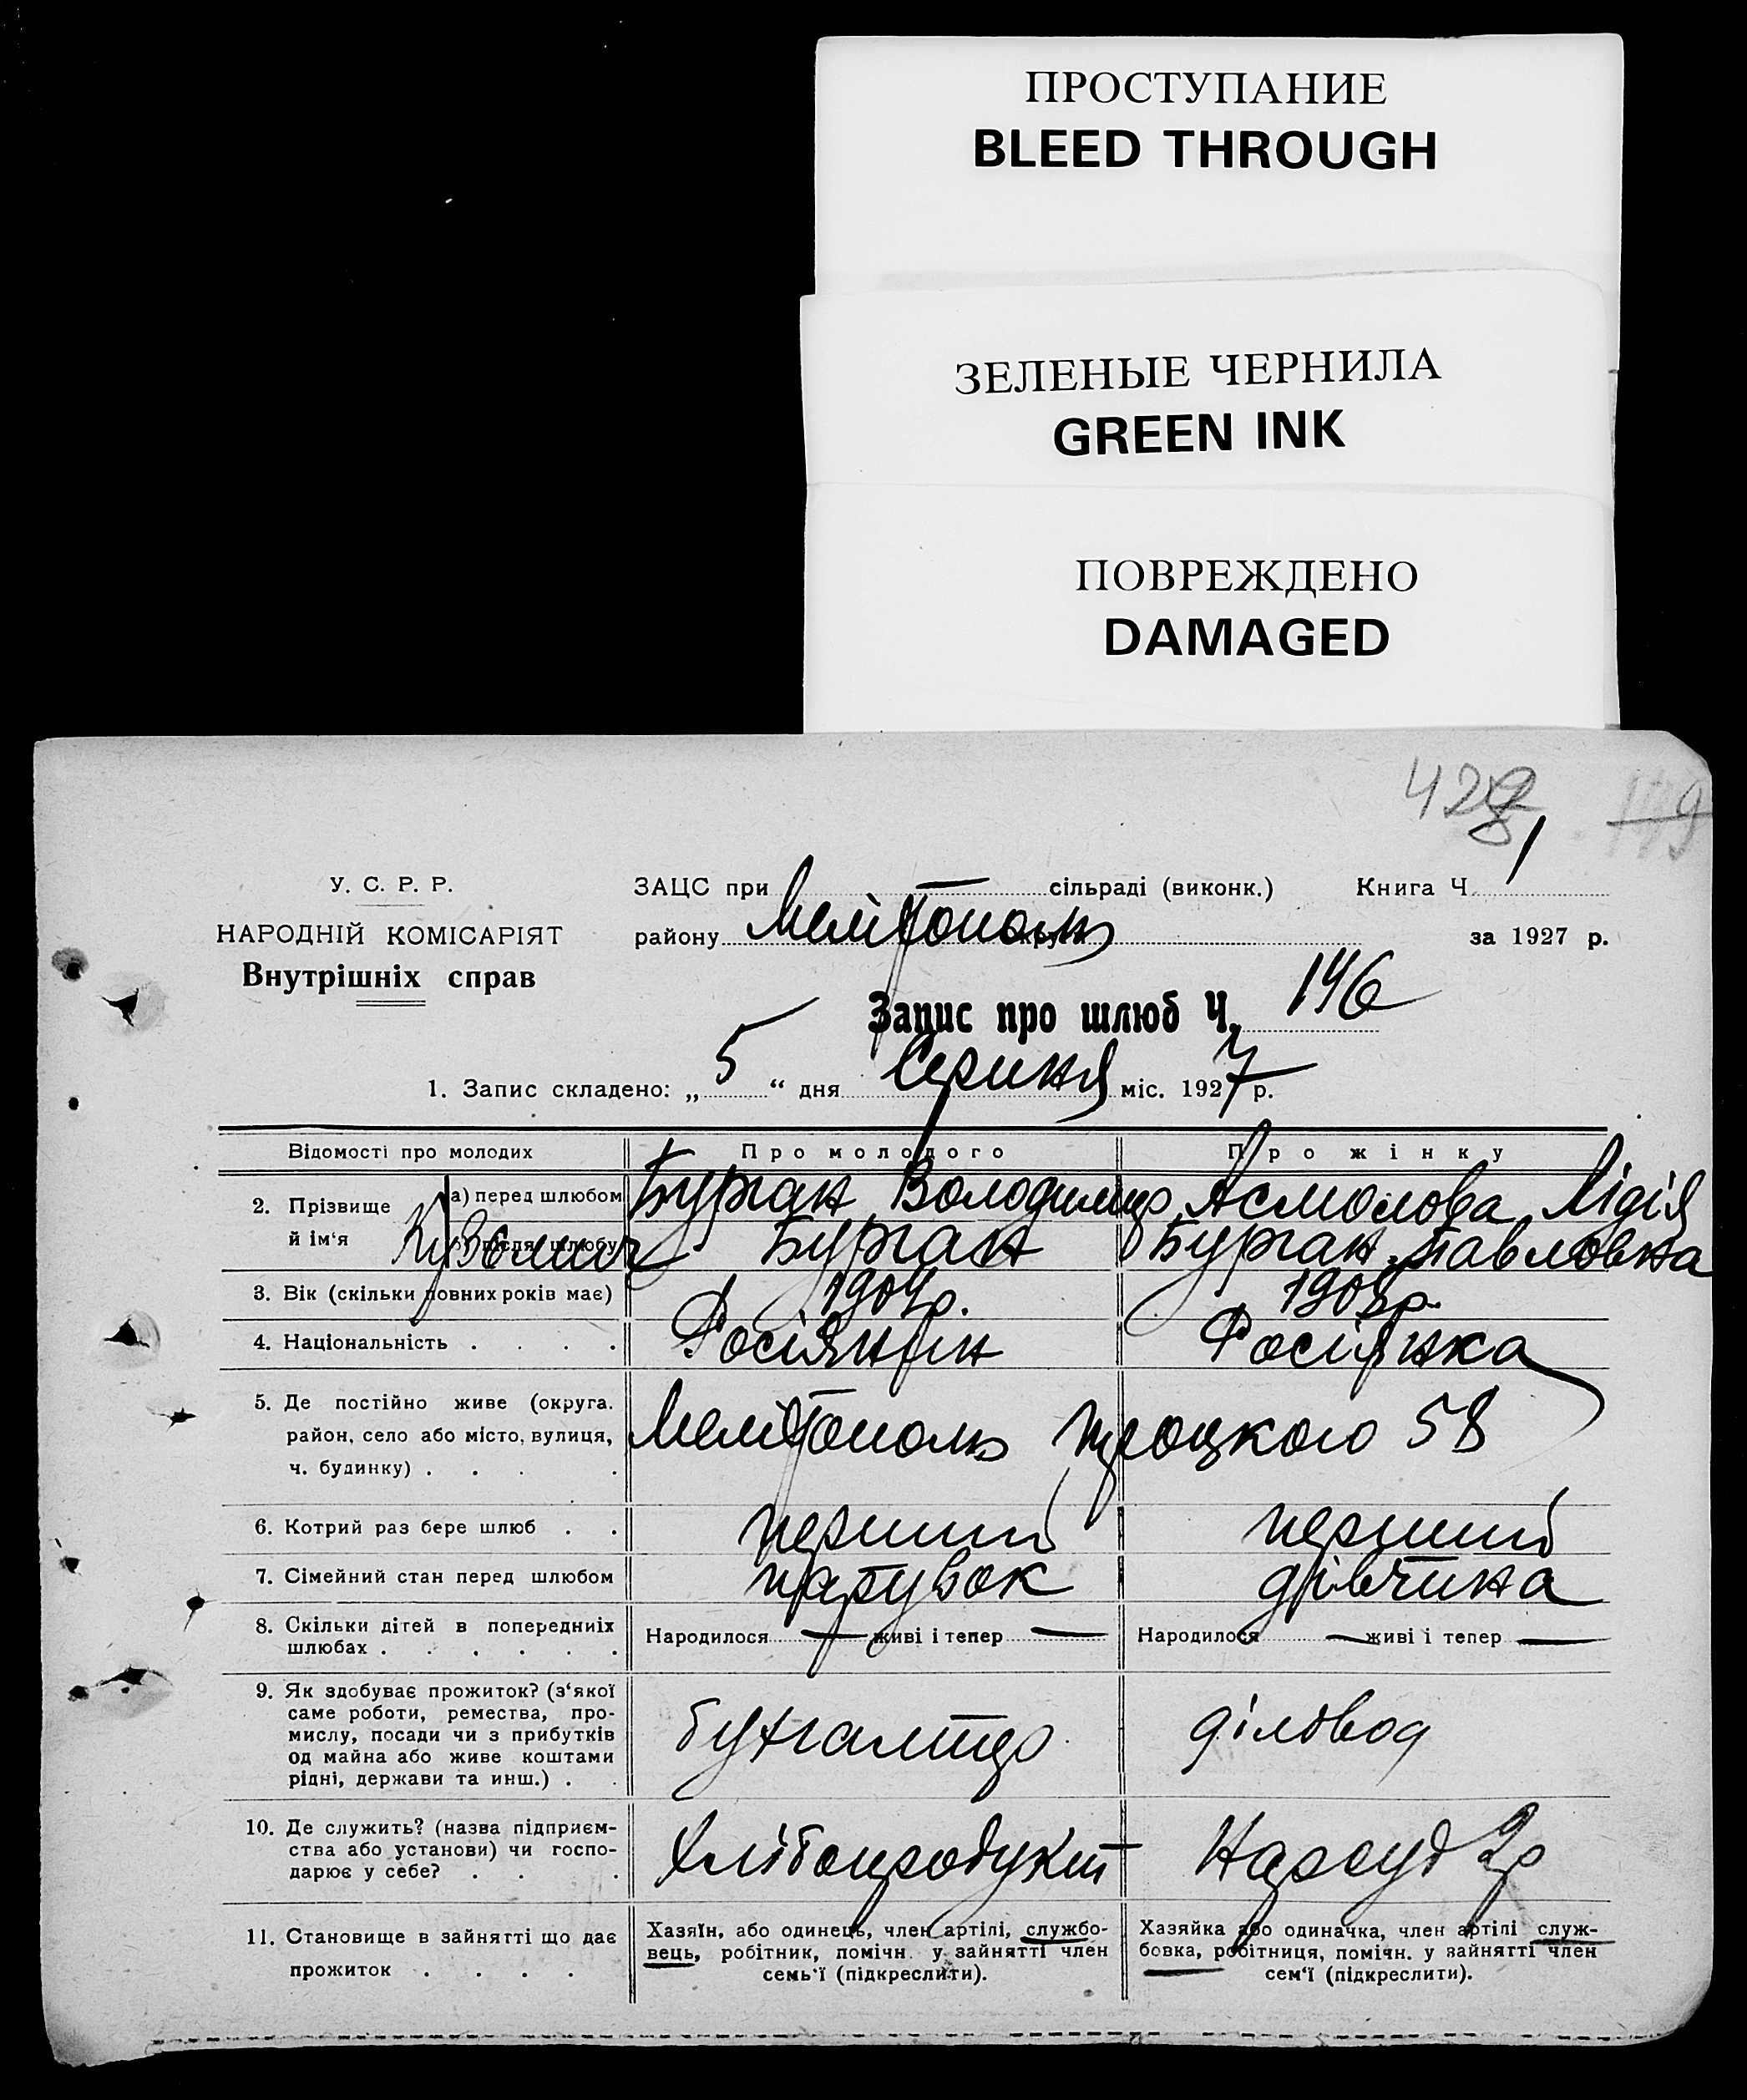 ПРОСТУПАНИЕ
BLEED THROUGH
ЗЕЛЕНЫЕ ЧЕРНИЛА
GREEN INK
ПОВРЕЖДЕНО
DAMAGED
У. С. Р. Р.
НАРОДНІЙ КОМІСАРІЯТ
Внутрішніх справ
ЗАЦС при — сільраді (виконк.) Книга Ч. 1
району Мелітополь за 1927 р.
Запис про шлюб Ч. 146
1. Запис складено: „ 5 “ дня Серпня міс. 1927 р.
Відомості про молодих Про молодого Про жінку
2. Прізвище й ім‘я а) перед шлюбом Бурган Володимир Асмолова Лідія
б) після шлюбу Бурган Бурган Павловна
3. Вік (скільки повних років має) 1904р.
4. Національність . . . . Росіянин Росіянка
5. Де постійно живе (округа.
район, село або місто, вулиця, Мелітополь Троцкого 58
ч. будинку) . . . .
6. Котрий раз бере шлюб . . перший перший
7. Сімейний стан перед шлюбом парубок дівчина
8. Скільки дітей в попередниіх
шлюбах . . . . . . Народилося — живі і тепер — Народилося — живі і тепер —
9. Як здобуває прожиток? (з‘якої
саме роботи, ремества, про-
мислу, посади чи з прибутків
од майна або живе коштами
рідні, держави та инш.) . .
бухгалтер діловод
10. Де служить? (назва підприєм-
ства або установи) чи госпо-
дарює у себе? . . .
Хлібопродукт Нарсуд 2р
11. Становище в зайнятті що дає
прожиток . . . .
Хазяїн, або одинець, член артілі, службо-
вець, робітник, помічн. у зайнятті член
семь‘ї (підкреслити).
Хазяйка або одиначка, член артілі служ-
бовка, робітниця, помічн. у зайнятті член
сем‘ї (підкреслити).